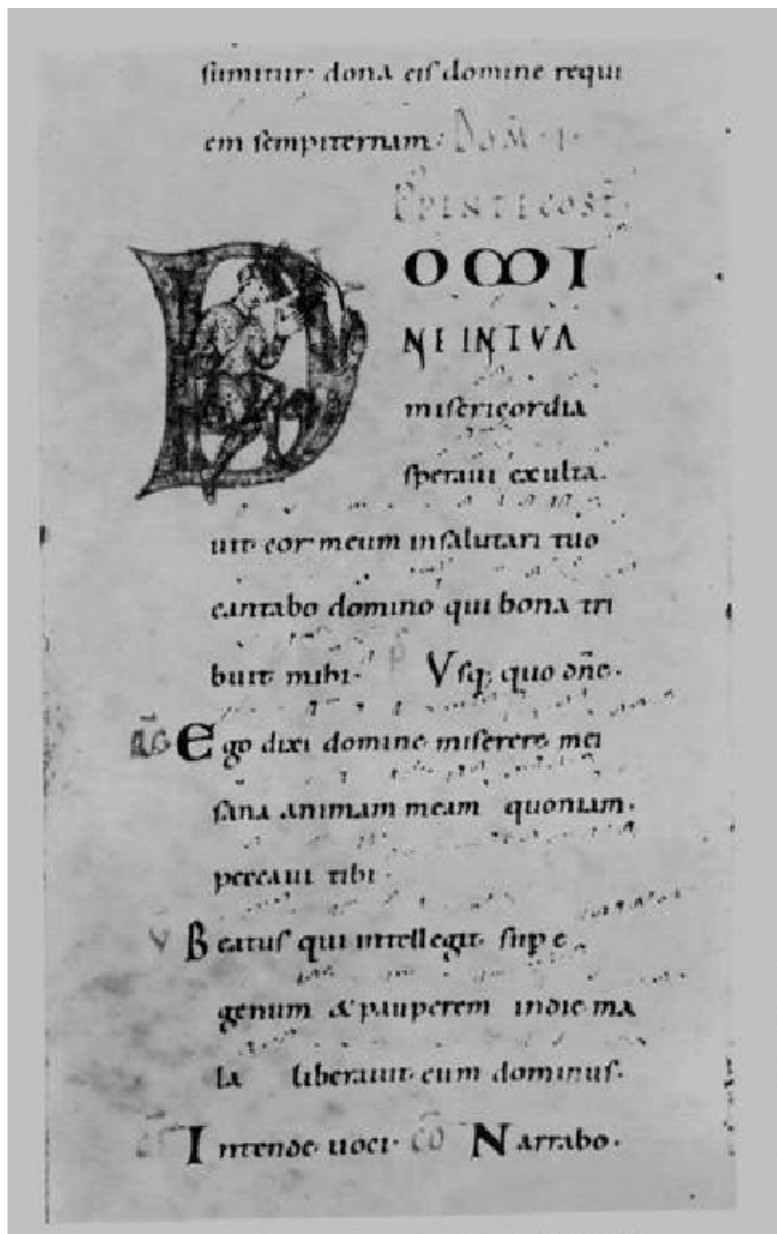 sumitur dona eis domine requi
em sempiternam· DOM̅·I·
P PENTECOST̅·
DOMI
NE IN TUA
misericordia
speraui exulta
uit cor meum insalutari tuo
cantabo domino qui bona tri
buit mihi· P̅ Vsq; quo dn̅e·
G̅ Ego dixi domine miserere mei
sana animam meam quoniam·
peccaui tibi
V Beatus qui intellegit sup e
genum & pauperem indie ma
la liberauit eum dominus·
Intende uoci· CO̅ Narrabo·